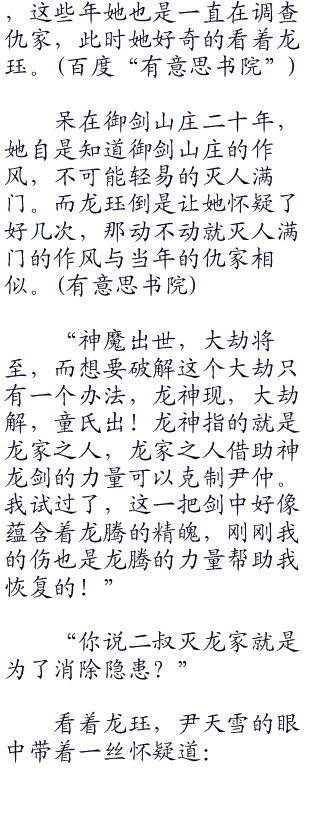 ，这些年她也是一直在调查
仇家，此时她好奇的看着龙
珏。(百度“有意思书院”)
呆在御剑山庄二十年，
她自是知道御剑山庄的作
风，不可能轻易的灭人满
门。而龙珏倒是让她怀疑了
好几次，那动不动就灭人满
门的作风与当年的仇家相
似。(有意思书院)
“神魔出世，大劫将
至，而想要破解这个大劫只
有一个办法，龙神现，大劫
解，童氏出！龙神指的就是
龙家之人，龙家之人借助神
龙剑的力量可以克制尹仲。
我试过了，这一把剑中好像
蕴含着龙腾的精魄，刚刚我
的伤也是龙腾的力量帮助我
恢复的！”
“你说二叔灭龙家就是
为了消除隐患？”
看着龙珏，尹天雪的眼
中带着一丝怀疑道：